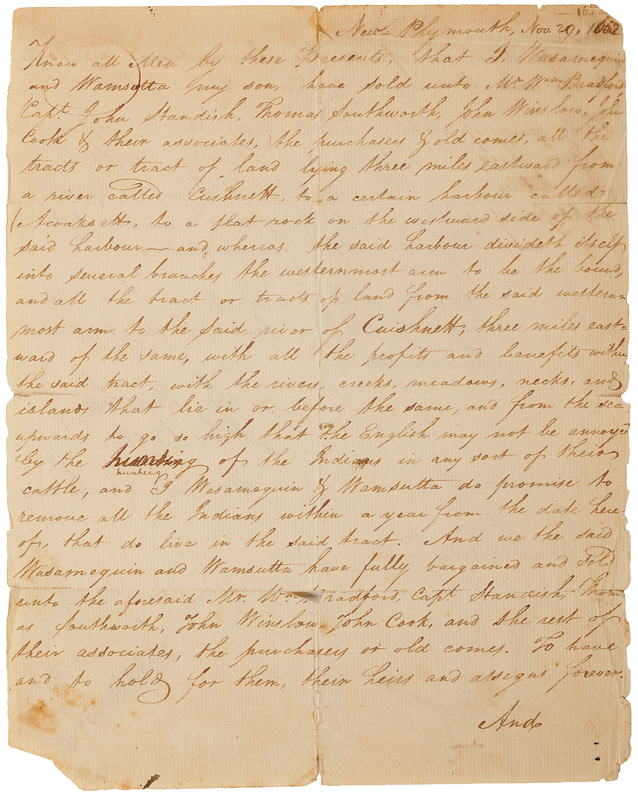 New Plymouth, Nov. 29, 1652
Know all Men by these Presents, that I, Wasamequin
and Wamsutta my son, have sold unto Mr. Wm. Bradford
Capt. John Standish, Thomas Southworth, John Winslow, John
Cook & their associates, the purchasers & old comes, all the
tracts or tract of land lying three miles eastward from
a river called Cushnett, to a certain harbour called
Acoaksett, to a flat rock on the westward side of the
said harbour— and whereas the said harbour divideth itself
into several branches the westernmost arm to be the bound,
and all the tract or tracts of land from the said western=
most arm to the said river of Cuishnett, three miles east-
ward of the same, with all the profits and benefits within
the said tract, with the rivers, creeks, meadows, necks, and
islands that lie in or before the same, and from the sea
upwards to go so high that the English may not be annoyed
by the hunting of the Indians in any sort of their
hunting
cattle, and I Wasamequin & Wamsutta do promise to
remove all the Indians within a year from the date here
of, that do live in the said tract. And we the said
Wasamequin and Wamsutta have fully bargained and sold
unto the aforesaid Mr. Wm. Bradford, Capt. Standish, Thom
as Southworth, John Winslow, John Cook, and the rest of
their associates, the purchasers or old comes. To have
and to hold for them, their heirs and assigns forever.
And